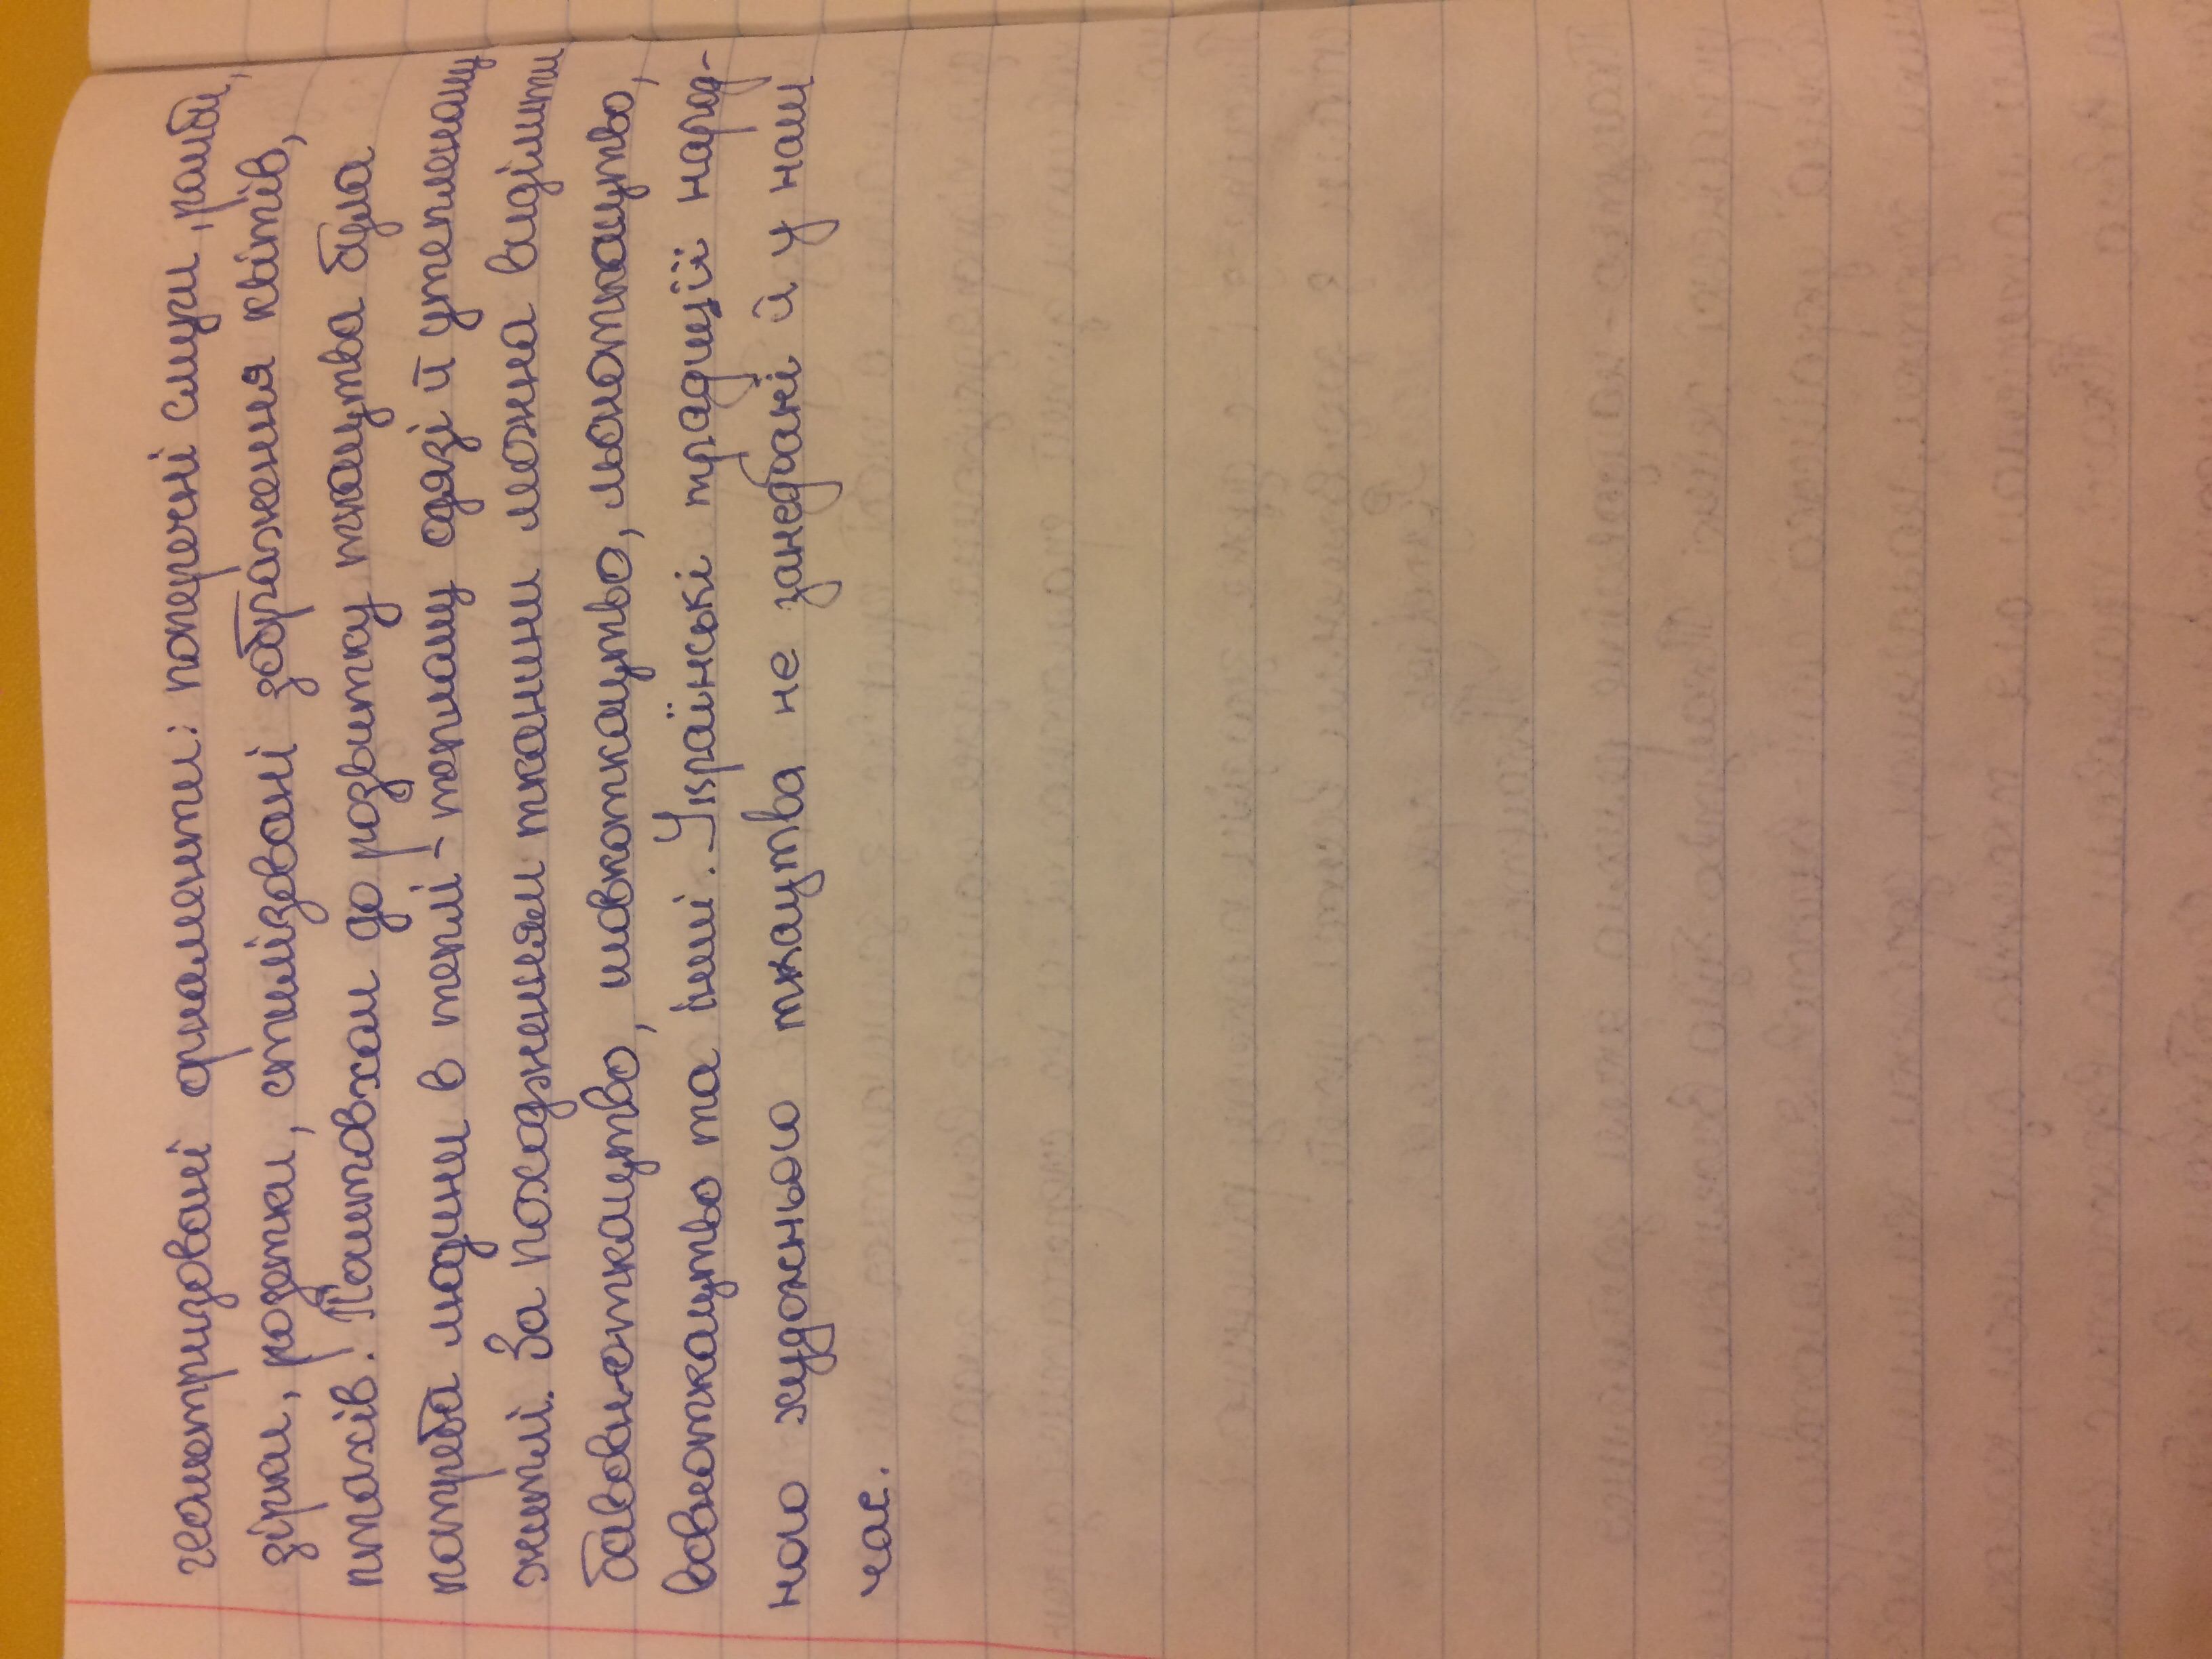 геометризовані орнаменти: поперечні смуги, ромби,
зірки, розетки, стилізовані зображення квітів,
птахів. Поштовхом до розвитку ткацтва була
потреба людини в теплі - теплому одязі й утепленому
житлі. За походженням тканини можна виділити
бавовно-ткацтво, шовкоткацтво, льоноткацтво,
вовноткацтво та інші. Українські традиції народ-
ного художнього ткацтва не занедбані й у наш
час.